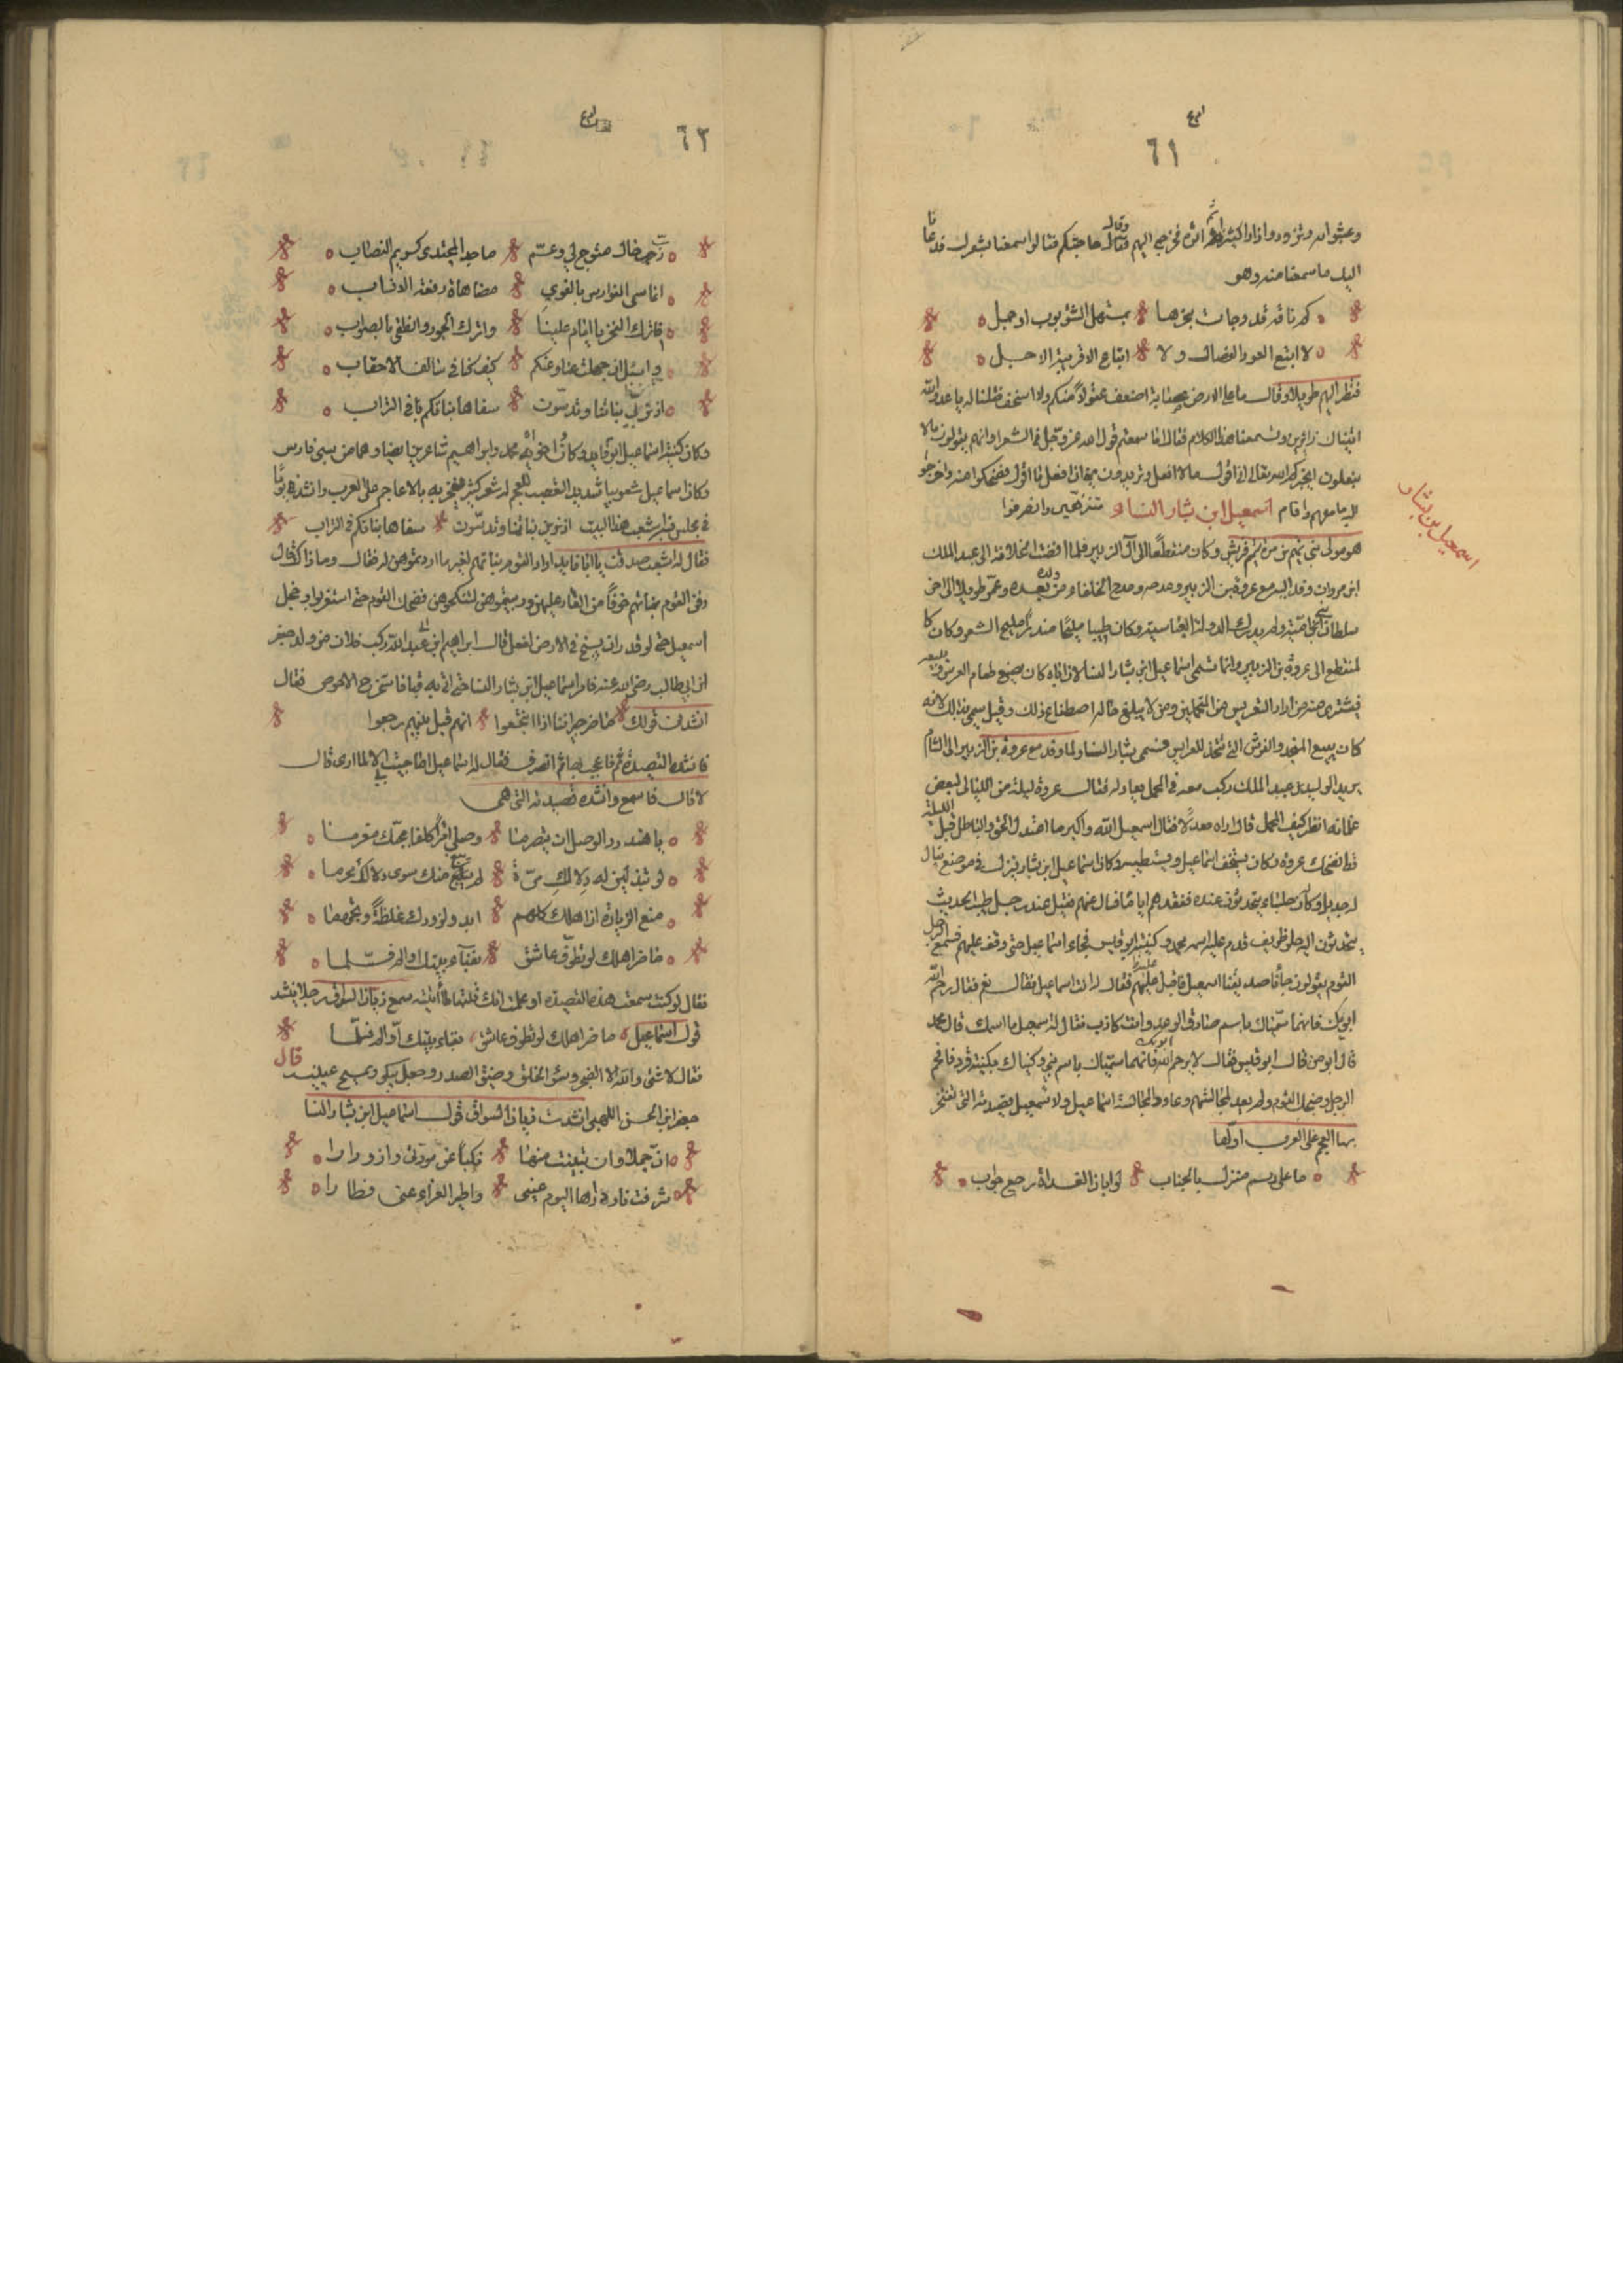 ٦١
وقال
كم ناقة قد وجات بحزها بمستهل الشؤبوب او جمل
لا ابتع العوذ بالفصال ولا ابتاع الا قريبة الاجل
فنظر اليهم طويلا وقال ما على الارض عصابة اضعف عقولا منكم ولا اسخف فقلنا له يا عدو الله
اتيناك زائرين وتسمعنا هذا الكلام فقال اما سمعتم قول الله عز وجل في الشعرا وانهم يقولون مالا
يفعلون
اسمعيل ابن يشار النسا
اسمعيل بن يشار
هو مولى بني تيم بن مرة تيم قريش وكان منقطعا الى آل الزبير فلما افضت الخلافة الى عبد الملك
ابن مروان وفد اليه مع عروة بن الزبير ومدحه ومدح الخلفاء من ولده بعده وعمر طويلا الى اخر
سلطان بني امية ولم يدرك الدولة العباسية وكان طيبا مليحا مندرا مليح الشعر وكان كا
لمنقطع الى عروة بن الزبير وانما سمى اسماعيل ابن يشار النسا لان اباه كان يصنع طعام العرس ويبيعه
فيشترى منه من اراد التعريس من المتجملين ومن لا يبلغ حاله اصطناع ذلك وقيل سمي بذلك لانه
كان يبيع النجد والفرش التى تتخذ للعرايس فسمى يشار النسا ولما وفد مع عروة بن الزبير الى الشام
يريد الوليد بن عبد الملك ركب معه في المحمل يعادله فقال عروة ليلة من الليالي لبعض
غلمانه انظر كيف المحمل قال اراه معتدلا فقال اسمعيل الله اكبر ما اعتدل الحق والباطل قبل الليلة
قط فضحك عروة وكان يستخف اسماعيل ويستطيبه وكان اسماعيل ابن يشار ينزل في موضع يقال
له حديلة وكان له جلساء يتحدثون عنده ففقدهم اياما فسال عنهم فقيل عند رجل طيب الحديث
يتحدثون اليه حلو ظريف قدم عليه اسمه محمد وكنيته ابو قيس فجاء اسماعيل حتى وقف عليهم فسمع الرجل
القوم يقولون جاء صديقنا اسمعيل فاقبل عليه فقال له انت اسماعيل فقال نعم فقال رحم الله
ابويك فانهما سمياك باسم صادق الوعد وانت كاذب فقال له اسمعيل ما اسمك قال محمد
قال ابو من قال ابو قيس فقال لا رحم الله ابويك فانهما سمياك باسم نبي وكنياك بكنية قرد فافحم
الرجل وضحك القوم ولم يعد لمجالستهم وعادوا لمجالسة اسماعيل ولاسمعيل قصيدته التى تفتخر
بها العجم على العرب اولها
ما على رسم منزل بالجناب لو ابان الغداة رجع جواب
٦٢
رب خال متوج لي وعم ماجد المجتدى كريم النصاب
انما سمى الفوارس بالفرس مضاهاة رفعة الانساب
فاترك الفخر يا امام علينا واترك الجور وانطقى بالصواب
واسئلى ان جهلت عنا وعنكم كيف كنا في سالف الاحقاب
اذ نربي بناتنا وتدسون سفاها بناتكم في التراب
وكان كنية اسماعيل ابو فايد وكان اخواه محمد وابراهيم شاعرين ايضا وهما من سبي فارس
وكان اسماعيل شعوبيا شديد التعصب للعجم له شعر كثير يفخر به بالاعاجم على العرب وانشد يوما
في مجلس فيه اشعب هذا البيت اذ نربي بناتنا وتدسون سفاها بناتكم في التراب
فقال له اشعب صدقت يا ابا فايد اراد القوم بناتهم لغير ما اردتموهن له فقال وما ذاك قال
دفن القوم بناتهم خوفا من العار عليهن وربيتموهن لتنكحوهن فضحك القوم حتى استغربوا وخجل
اسمعيل حتى لو قدر ان يسيخ في الارض لفعل قال ابراهيم ابن عبد الله ركب فلان من ولد جعفر
ابن ابي طالب رضي الله عنه فامر اسماعيل ابن يشار النسا حتى اتى به قبا فاستخرج الاحوص فقال
انشدنى قولك ما ضر جيراننا اذا انتجعوا لو انهم قبل بينهم ربعوا
فانشده القصيدة فاعجب بها ثم انصرف فقال له اسماعيل اما جيت الا لما ارى قال
لا قال فاسمع وانشده قصيدته التى هي
يا هند ردي الوصل ان يتصرما وصلى امرأ كلفا بحبك مغرما
لو تبذلين له دلالك مرة لم نبغ منك سوى دلالك محرما
منع الزيارة ان اهلك كلهم ابدوا لزورك غلظة وتجهما
ما ضر اهلك لو تطوف عاشق بفناء بيتك او الم فسلما
فقال لو كنت سمعت هذه القصيدة او علمت انك قلتها لما اتيته سمع زبان السواق رجلا ينشد
قول اسماعيل ما ضر اهلك لو تطوف عاشق بفناء بيتك او الم فسلما
فقال لا شئ والله الا الضجر وسوء الخلق وضيق الصدر وجعل يبكى ويمسح عينيه قال
جعفر ابن الحسن اللهبي انشدت زبان السواق قول اسماعيل ابن يشار النسا
ان جملا وان تبينت منها نكبا عن مودتى وازورارا
شردت بادكارها النوم عينى واطير العزاء عنى فطارا